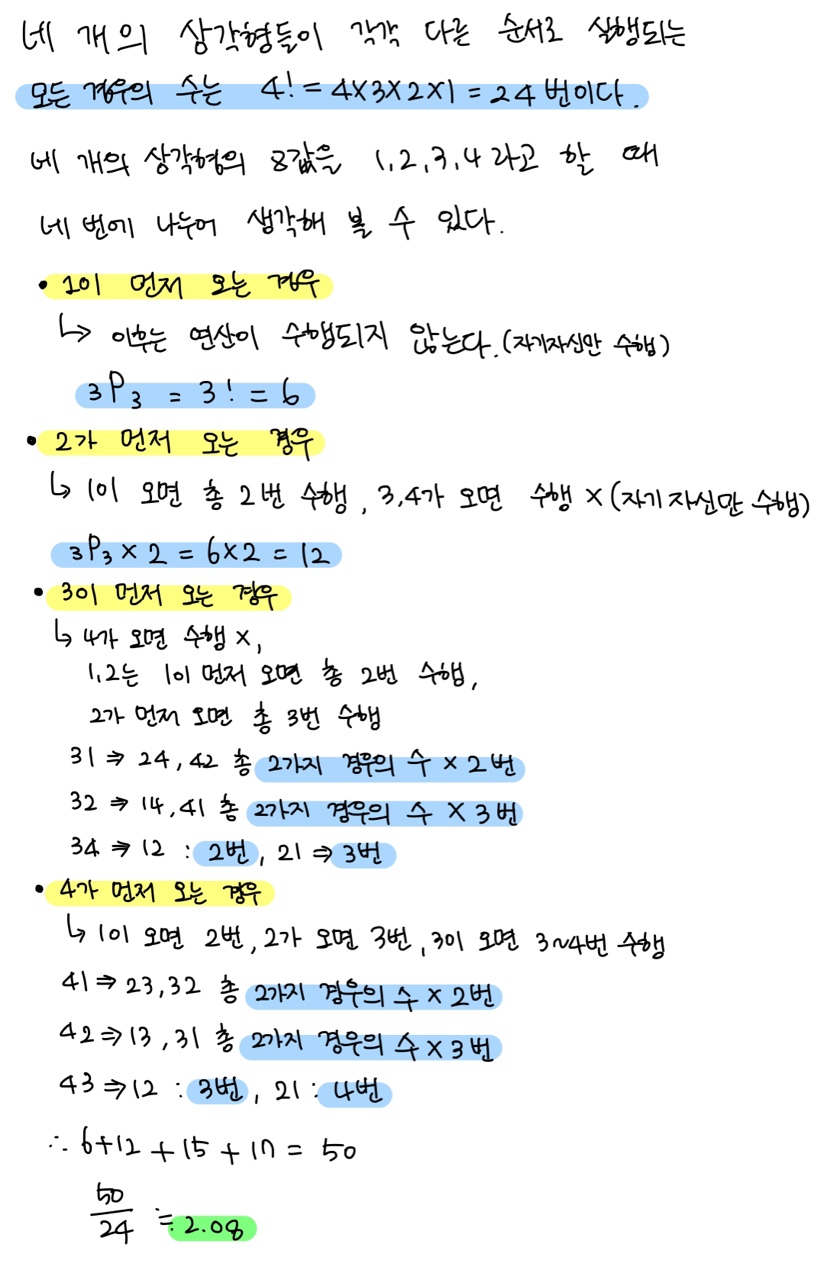 네 개의 삼각형들이 각각 다른 순서로 실행되는
모든 경우의 수는 4! = 4×3×2×1 = 24번이다.
네 개의 삼각형의 z값을 1,2,3,4 라고 할 때
네 번에 나누어 생각해 볼 수 있다.
• 1이 먼저 오는 경우
↳ 이후는 연산이 수행되지 않는다. (자기자신만 수행)
₃P₃ = 3! = 6
• 2가 먼저 오는 경우
↳ 1이 오면 총 2번 수행, 3,4가 오면 수행 × (자기 자신만 수행)
₃P₃ × 2 = 6×2 = 12
• 3이 먼저 오는 경우
↳ 4가 오면 수행 ×,
1,2는 1이 먼저 오면 총 2번 수행,
2가 먼저 오면 총 3번 수행
31 ⇒ 24, 42 총 2가지 경우의 수 × 2번
32 ⇒ 14, 41 총 2가지 경우의 수 × 3번
34 ⇒ 12 : 2번, 21 ⇒ 3번
• 4가 먼저 오는 경우
↳ 1이 오면 2번, 2가 오면 3번, 3이 오면 3~4번 수행
41 ⇒ 23, 32 총 2가지 경우의 수 × 2번
42 ⇒ 13, 31 총 2가지 경우의 수 × 3번
43 ⇒ 12 : 3번, 21 : 4번
∴ 6+12+15+17 = 50
50/24 ≒ 2.08